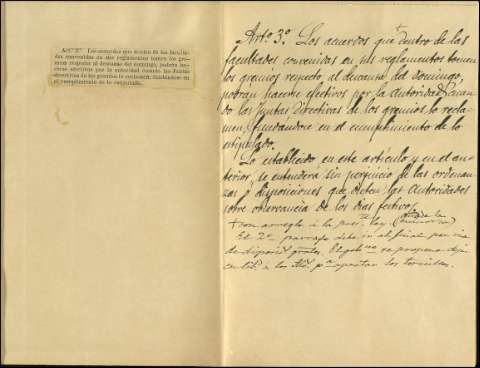 Art.º 3.º Los acuerdos que dentro de las faculta-
des convenidas en sus reglamentos tomen los gre-
mios respecto al descanso del domingo, podrán ha-
cerse efectivos por la autoridad cuando las Juntas
directivas de los gremios lo reclamen, fundándose en
el cumplimiento de lo estipulado.
Artº. 3º. Los acuerdos qe dentro de las
facultades convenidas en sus reglamentos tomen
los gremios respecto, al descanso del domingo,
podran hacerse efectivos por la Autoridad cuan-
do las Juntas Directivas de los gremios lo recla-
men, fundándose en el cumplimiento de lo
estipulado.
Lo establecido en este artículo y en el an-
terior, se entenderá sin perjuicio de las ordenan-
zas o disposiciones que dicten las Autoridades
sobre observancia de los días festivos
con arreglo á la pres.te ley
El 2º parrafo debe ir al final por via
de disposicn gral.